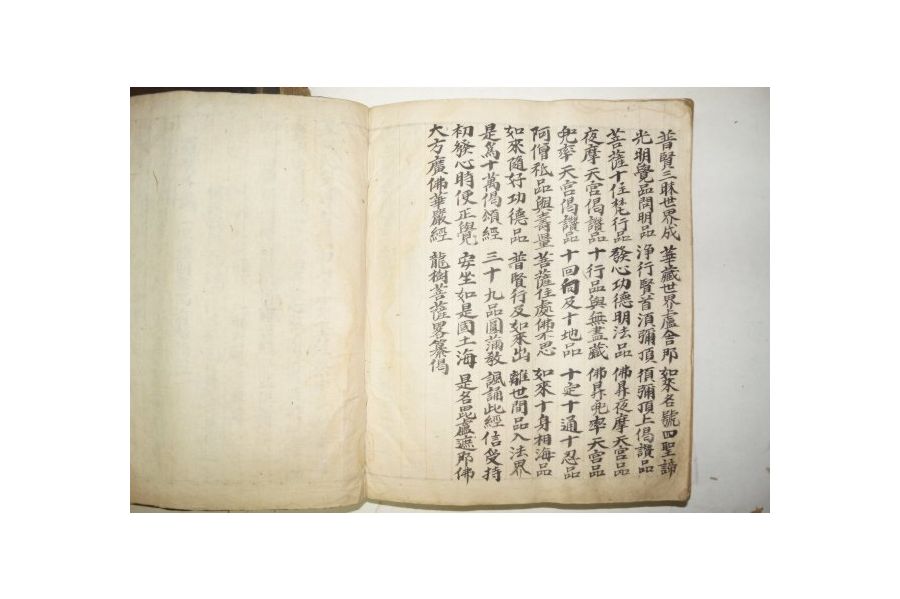 普賢三昧世界成 華藏世界盧舍那 如來名號四聖諦
光明覺品問明品 淨行賢首須彌頂 須彌頂上偈讚品
菩薩十住梵行品 發心功德明法品 佛昇夜摩天宮品
夜摩天宮偈讚品 十行品與無盡藏 佛昇兜率天宮品
兜率天宮偈讚品 十回向及十地品 十定十通十忍品
阿僧秪品與壽量 菩薩住處佛不思 如來十身相海品
如來隨好功德品 普賢行及如來出 離世間品入法界
是爲十萬偈頌經 三十九品圓滿敎 諷誦此經信受持
初發心時便正覺 安坐如是國土海 是名毘盧遮那佛
大方廣佛華嚴經 龍樹菩薩畧纂偈